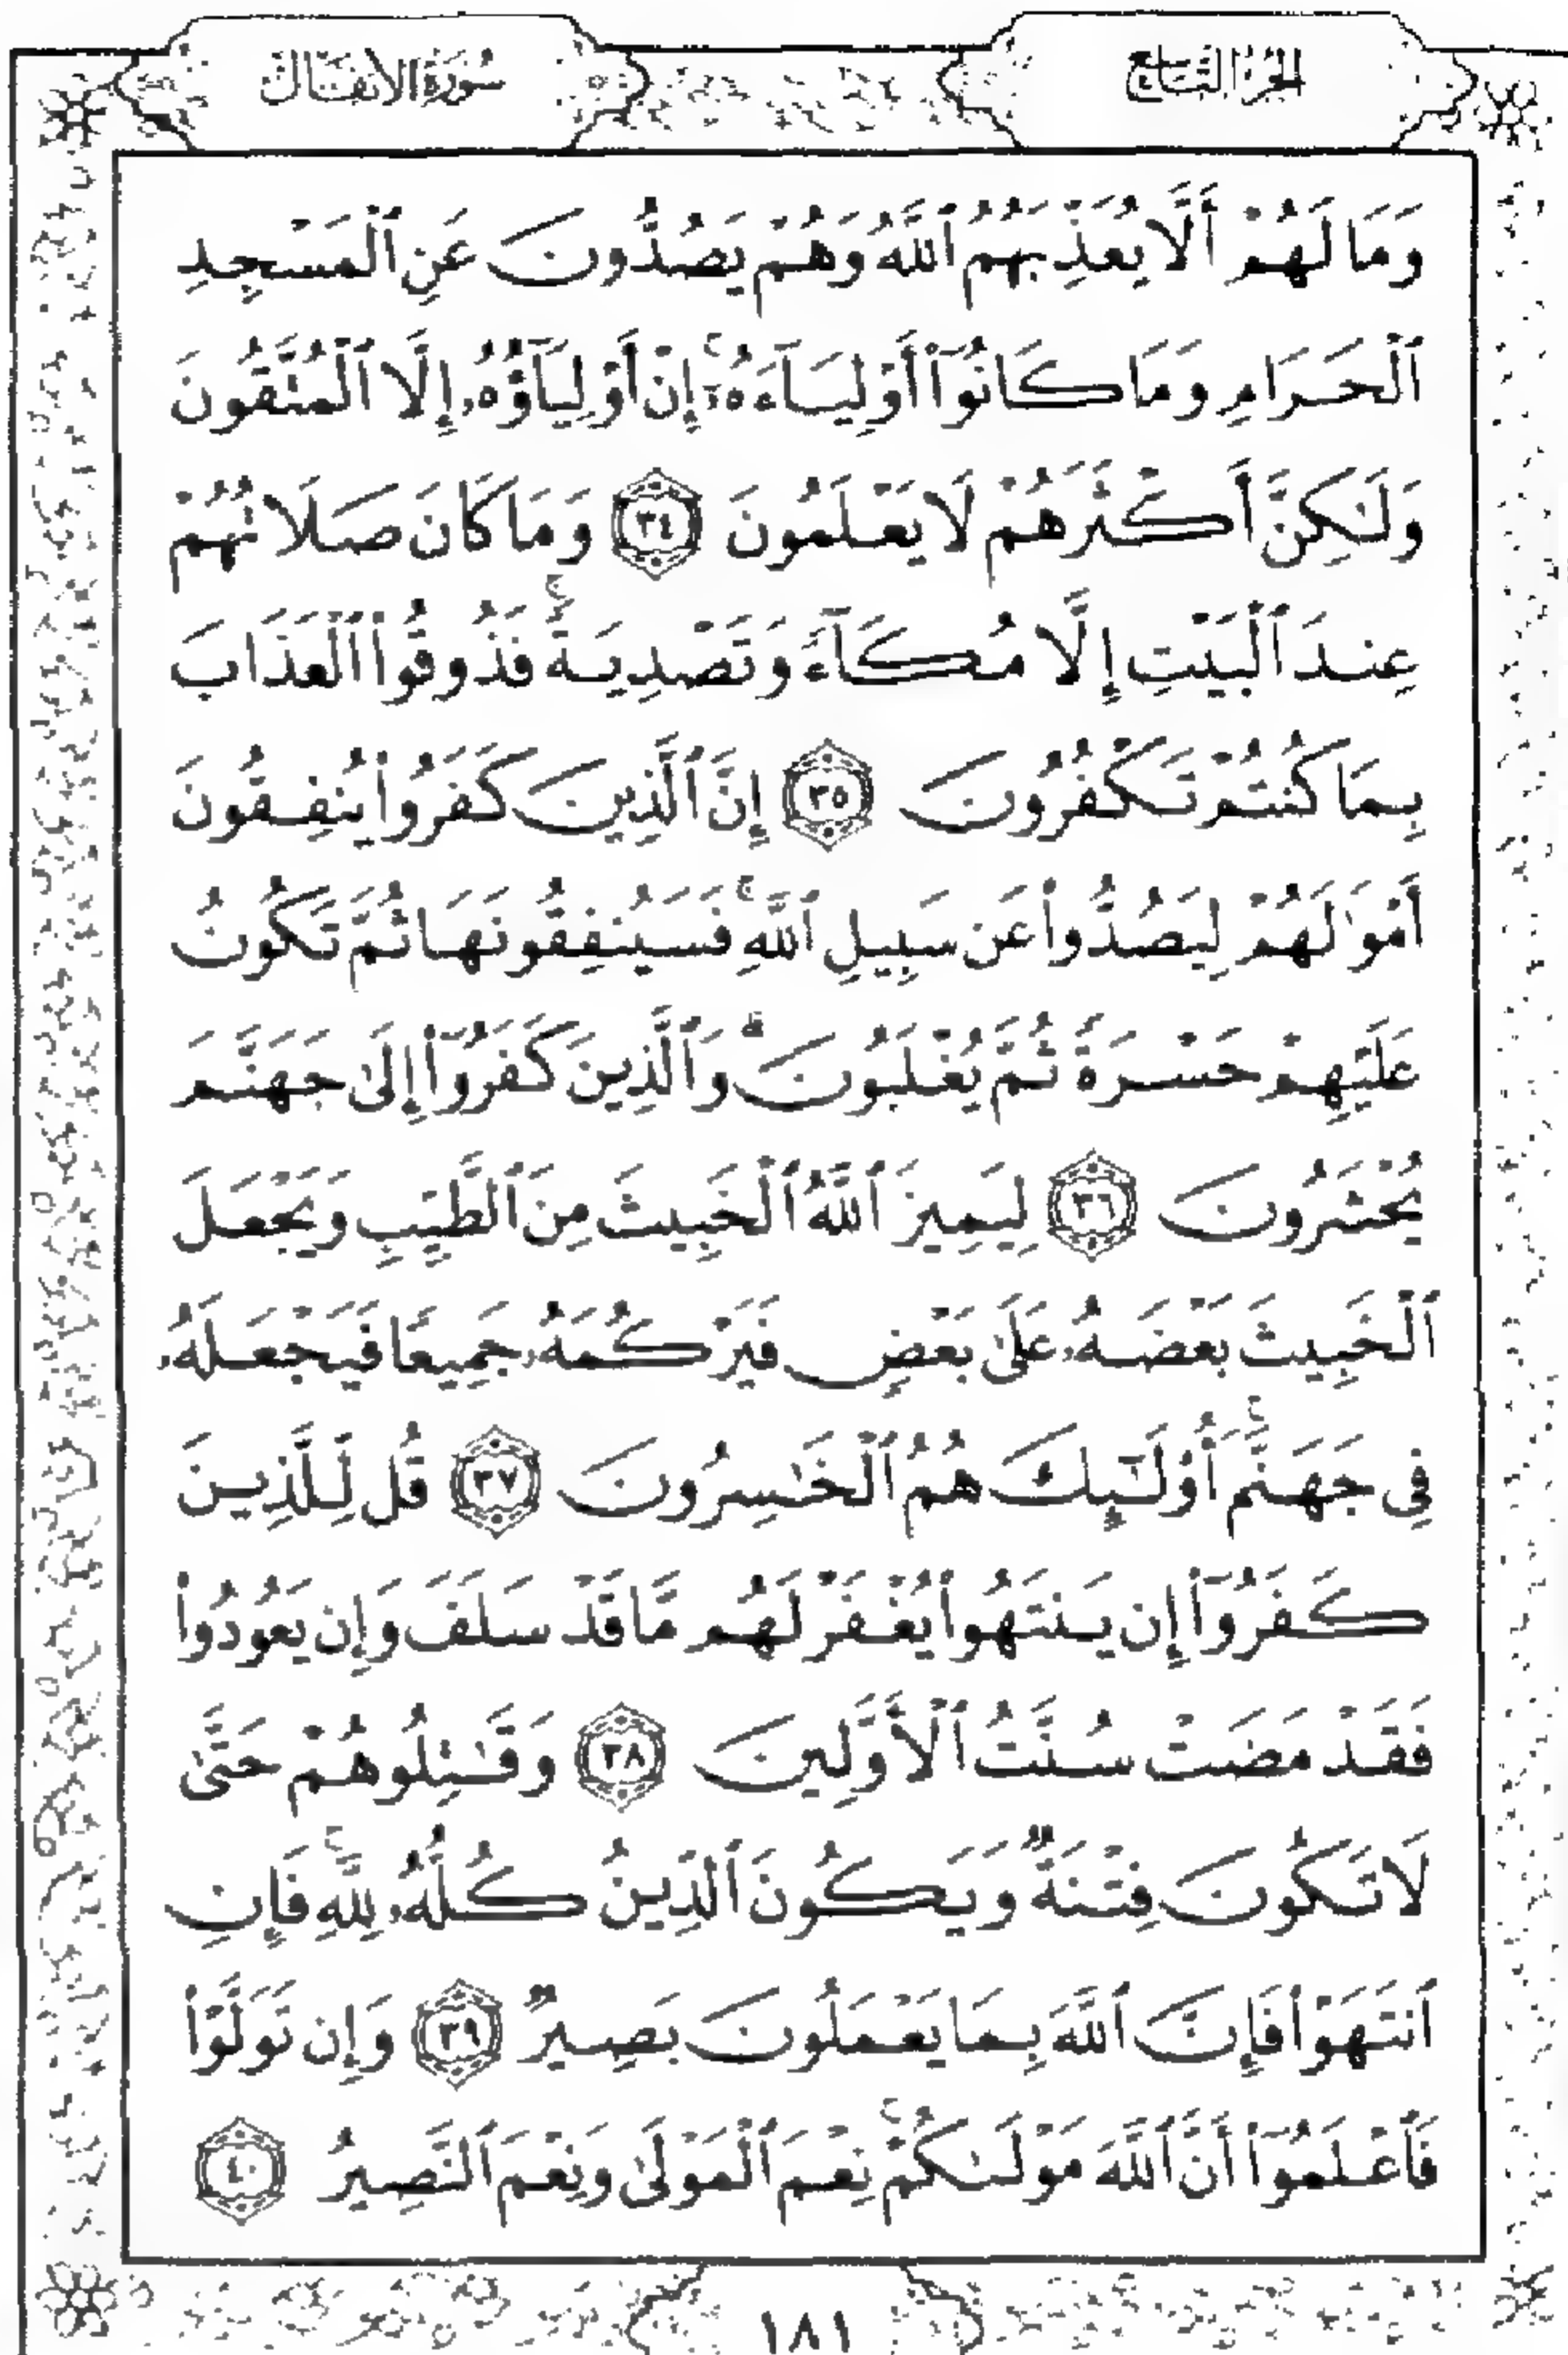 الجزء التاسع
سورة الأنفال
وَمَا لَهُمْ أَلَّا يُعَذِّبَهُمُ ٱللَّهُ وَهُمْ يَصُدُّونَ عَنِ ٱلْمَسْجِدِ
ٱلْحَرَامِ وَمَا كَانُوٓا۟ أَوْلِيَآءَهُۥٓ ۚ إِنْ أَوْلِيَآؤُهُۥٓ إِلَّا ٱلْمُتَّقُونَ
وَلَـٰكِنَّ أَكْثَرَهُمْ لَا يَعْلَمُونَ ٣٤ وَمَا كَانَ صَلَاتُهُمْ
عِندَ ٱلْبَيْتِ إِلَّا مُكَآءً وَتَصْدِيَةً ۚ فَذُوقُوا۟ ٱلْعَذَابَ
بِمَا كُنتُمْ تَكْفُرُونَ ٣٥ إِنَّ ٱلَّذِينَ كَفَرُوا۟ يُنفِقُونَ
أَمْوَٰلَهُمْ لِيَصُدُّوا۟ عَن سَبِيلِ ٱللَّهِ ۚ فَسَيُنفِقُونَهَا ثُمَّ تَكُونُ
عَلَيْهِمْ حَسْرَةً ثُمَّ يُغْلَبُونَ ۗ وَٱلَّذِينَ كَفَرُوٓا۟ إِلَىٰ جَهَنَّمَ
يُحْشَرُونَ ٣٦ لِيَمِيزَ ٱللَّهُ ٱلْخَبِيثَ مِنَ ٱلطَّيِّبِ وَيَجْعَلَ
ٱلْخَبِيثَ بَعْضَهُۥ عَلَىٰ بَعْضٍ فَيَرْكُمَهُۥ جَمِيعًا فَيَجْعَلَهُۥ
فِى جَهَنَّمَ ۚ أُو۟لَـٰٓئِكَ هُمُ ٱلْخَـٰسِرُونَ ٣٧ قُل لِّلَّذِينَ
كَفَرُوٓا۟ إِن يَنتَهُوا۟ يُغْفَرْ لَهُم مَّا قَدْ سَلَفَ وَإِن يَعُودُوا۟
فَقَدْ مَضَتْ سُنَّتُ ٱلْأَوَّلِينَ ٣٨ وَقَـٰتِلُوهُمْ حَتَّىٰ
لَا تَكُونَ فِتْنَةٌ وَيَكُونَ ٱلدِّينُ كُلُّهُۥ لِلَّهِ ۚ فَإِنِ
ٱنتَهَوْا۟ فَإِنَّ ٱللَّهَ بِمَا يَعْمَلُونَ بَصِيرٌ ٣٩ وَإِن تَوَلَّوْا۟
فَٱعْلَمُوٓا۟ أَنَّ ٱللَّهَ مَوْلَىٰكُمْ ۚ نِعْمَ ٱلْمَوْلَىٰ وَنِعْمَ ٱلنَّصِيرُ ٤٠
١٨١